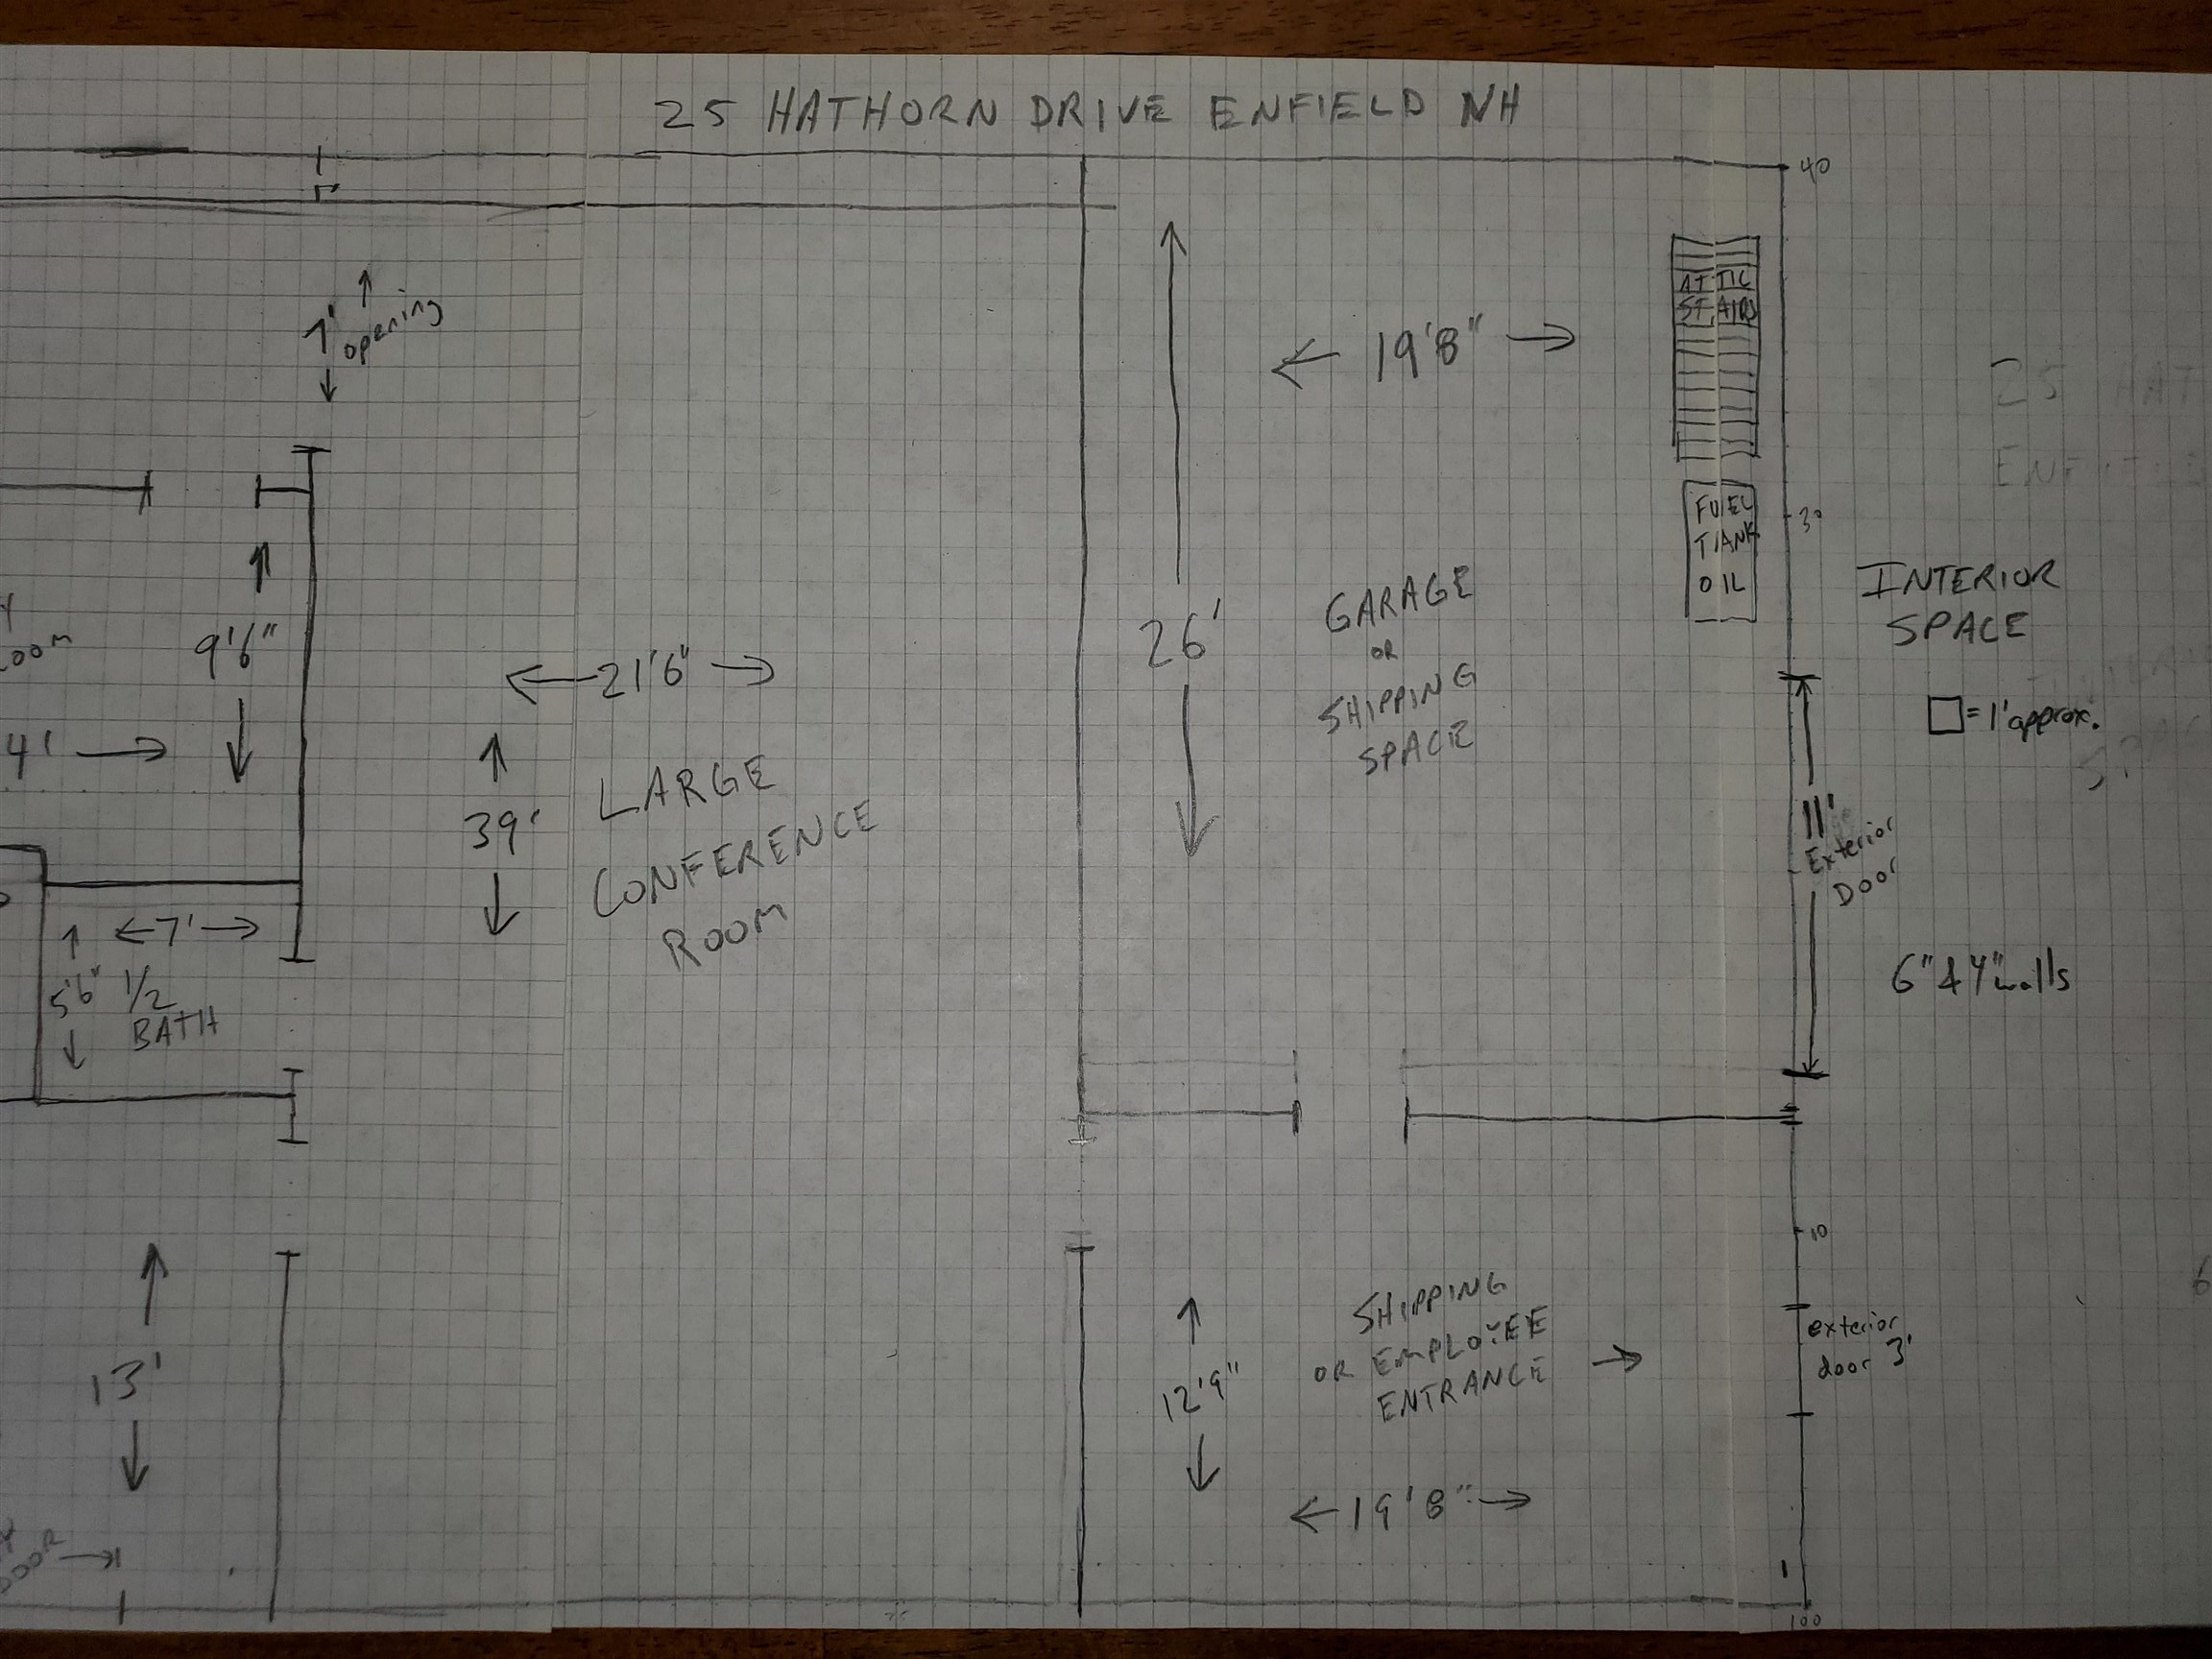 25 HATHORN DRIVE ENFIELD NH
40
7' opening
19'8"
ATTIC
STAIRS
25 HAT
30
FUEL
TANK
OIL
INTERIOR
SPACE
□ = 1' approx.
GARAGE
OR
SHIPPING
SPACE
26'
9'6"
21'6"
4'
39'
LARGE
CONFERENCE
ROOM
11'
Exterior
Door
7'
5'6" 1/2
BATH
6" & 4" walls
10
SHIPPING
OR EMPLOYEE
ENTRANCE
exterior
door 3'
12'9"
13'
19'8"
100